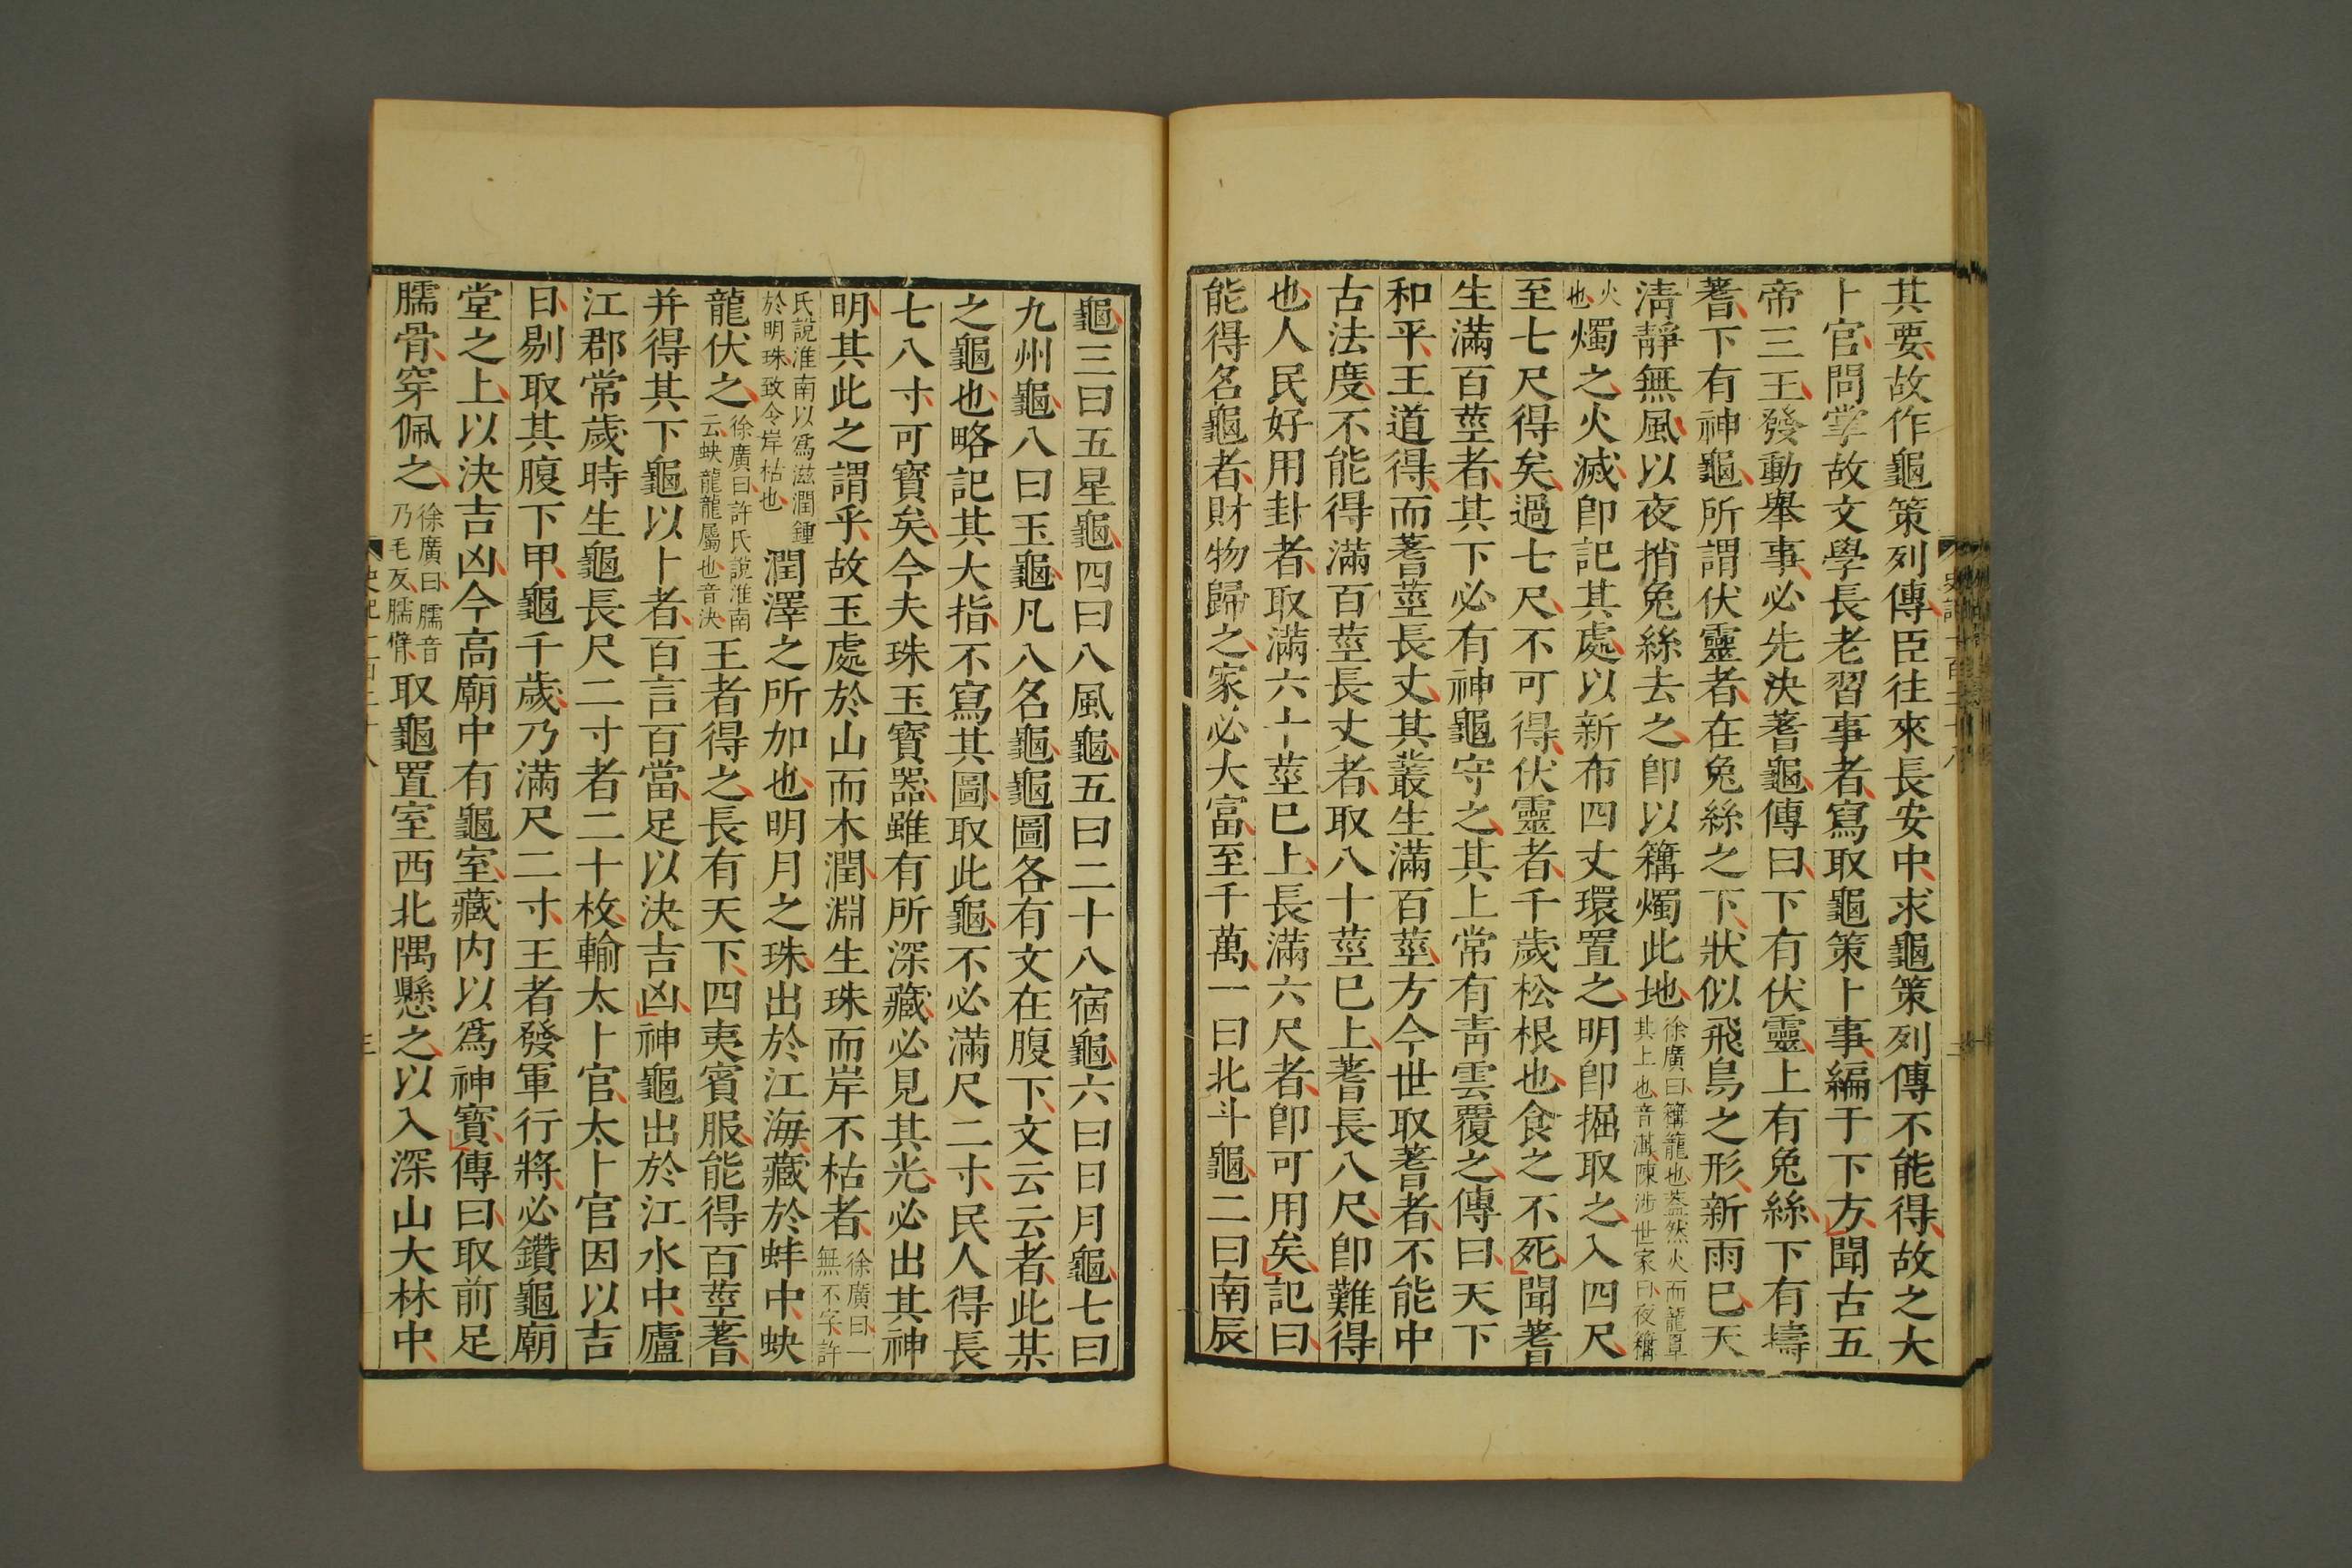 其要故作龜策列傳臣往來長安中求龜策列傳不能得故之大
卜官問掌故文學長老習事者寫取龜策卜事編于下方聞古五
帝三王發動舉事必先決蓍龜傳曰下有伏靈上有兔絲下有擣
蓍下有神龜所謂伏靈者在兔絲之下狀似飛鳥之形新雨已天
清靜無風以夜捎兔絲去之卽以篝燭此地徐廣曰篝籠也蓋然火而籠罩其上也音溝陳涉世家曰夜篝
火也燭之火滅卽記其處以新布四丈環置之明卽掘取之入四尺
至七尺得矣過七尺不可得伏靈者千歲松根也食之不死聞蓍
生滿百莖者其下必有神龜守之其上常有靑雲覆之傳曰天下
和平王道得而蓍莖長丈其叢生滿百莖方今世取蓍者不能中
古法度不能得滿百莖長丈者取八十莖已上蓍長八尺卽難得
也人民好用卦者取滿六十莖已上長滿六尺者卽可用矣記曰
能得名龜者財物歸之家必大富至千萬一曰北斗龜二曰南辰
龜三曰五星龜四曰八風龜五曰二十八宿龜六曰日月龜七曰
九州龜八曰玉龜凡八名龜龜圖各有文在腹下文云云者此某
之龜也略記其大指不寫其圖取此龜不必滿尺二寸民人得長
七八寸可寶矣今夫珠玉寶器雖有所深藏必見其光必出其神
明其此之謂乎故玉處於山而木潤淵生珠而岸不枯者徐廣曰一無不字許
氏說淮南以爲滋潤鍾於明珠致令岸枯也潤澤之所加也明月之珠出於江海藏於蚌中蚗
龍伏之徐廣曰許氏說淮南云蚗龍龍屬也音決王者得之長有天下四夷賓服能得百莖蓍
并得其下龜以卜者百言百當足以決吉凶神龜出於江水中廬
江郡常歲時生龜長尺二寸者二十枚輸太卜官太卜官因以吉
日剔取其腹下甲龜千歲乃滿尺二寸王者發軍行將必鑽龜廟
堂之上以決吉凶今高廟中有龜室藏内以爲神寶傳曰取前足
臑骨穿佩之徐廣曰臑音乃毛反臑臂取龜置室西北隅懸之以入深山大林中